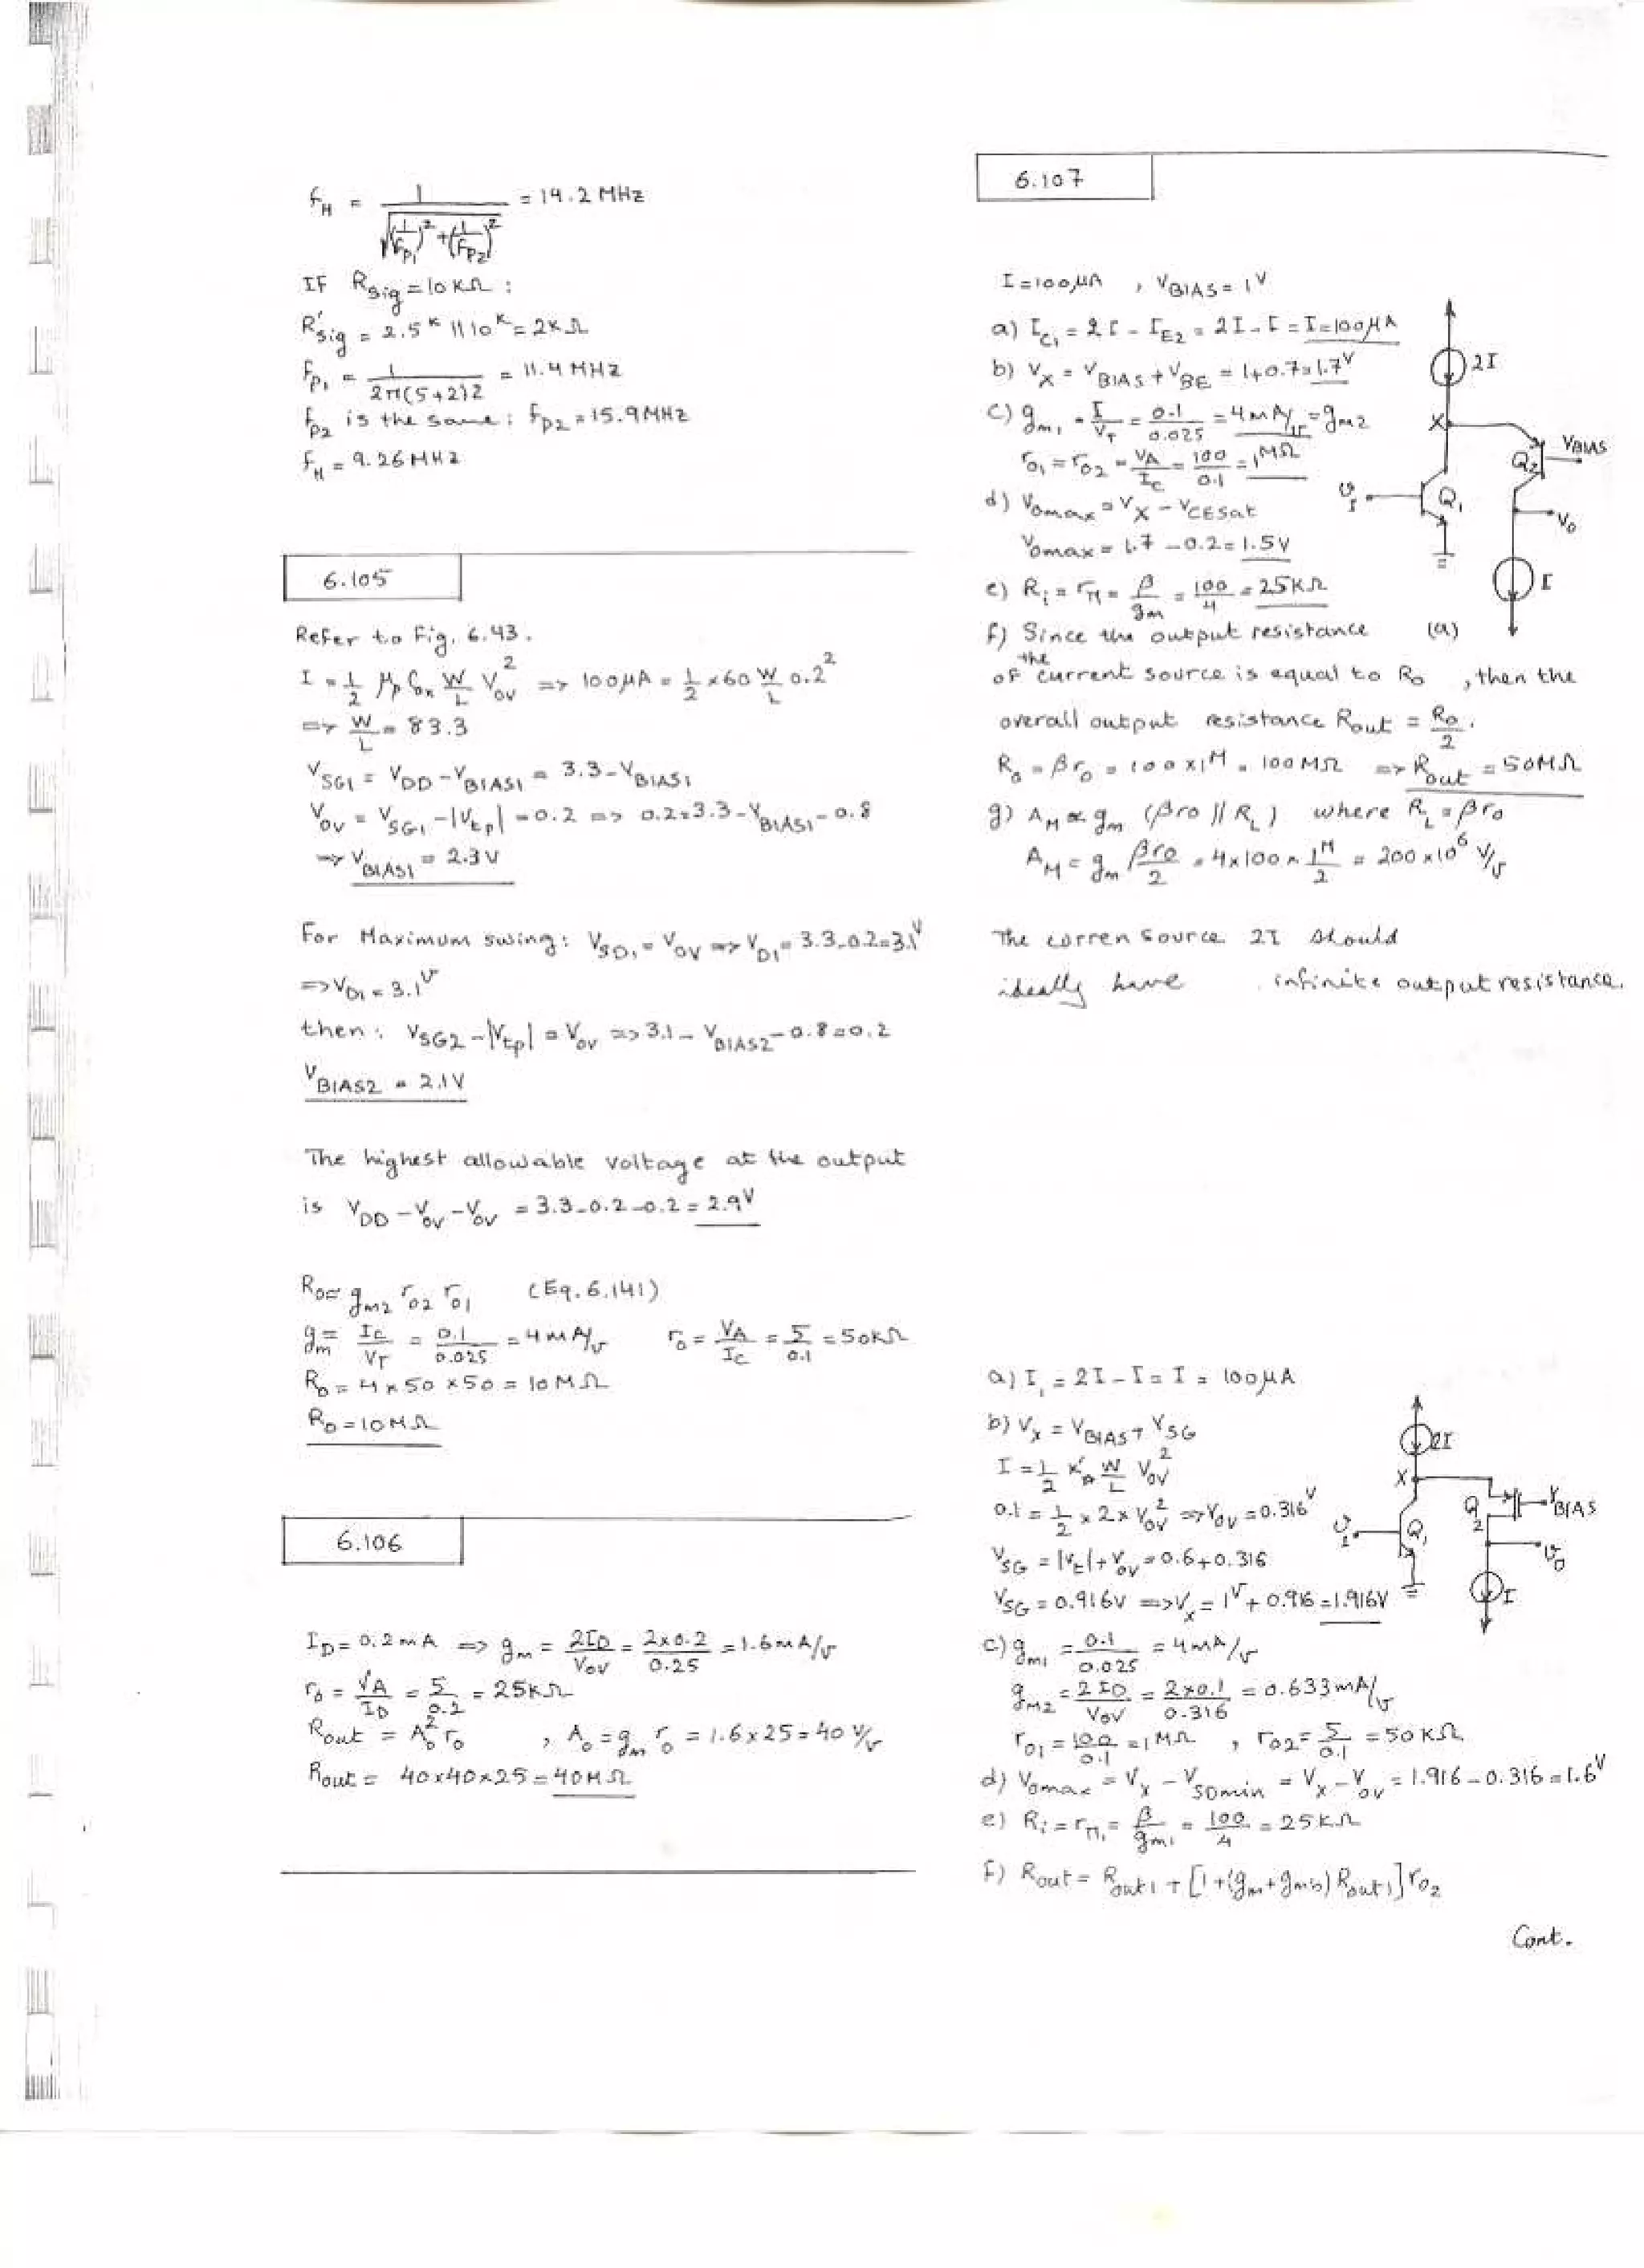 f_H = 1 / √((1/f_P1)² + (1/f_P2)²) = 14.2 MHz
IF Rsig = 10 KΩ :
R'sig = 2.5^K || 10^K = 2KΩ
f_P1 = 1 / 2π(5+2)2 = 11.4 MHz
f_P2 is the same : f_P2 = 15.9 MHz
f_H = 9.26 MHz
6.105
Refer to Fig. 6.43.
I = 1/2 μp Cox W/L Vov² => 100μA = 1/2 × 60 W/L 0.2²
=> W/L = 83.3
V_SG1 = V_DD - V_BIAS1 = 3.3 - V_BIAS1
Vov = V_SG1 - |Vtp| = 0.2 => 0.2 = 3.3 - V_BIAS1 - 0.8
=> V_BIAS1 = 2.3 V
For Maximum swing : V_SD1 = Vov => V_D1 = 3.3 - 0.2 = 3.1^V
=> V_D1 = 3.1^V
then : V_SG2 - |Vtp| = Vov => 3.1 - V_BIAS2 - 0.8 = 0.2
V_BIAS2 = 2.1 V
The highest allowable voltage at the output
is V_DD - Vov - Vov = 3.3 - 0.2 - 0.2 = 2.9^V
Ro = gm2 ro2 ro1 (Eq. 6.141)
gm = Ic/V_T = 0.1/0.025 = 4 mA/v ro = V_A/Ic = 5/0.1 = 50KΩ
Ro = 4 × 50 × 50 = 10 MΩ
Ro = 10MΩ
6.106
I_D = 0.2 mA => gm = 2I_D/Vov = 2×0.2/0.25 = 1.6 mA/v
ro = V'A/I_D = 5/0.2 = 25KΩ
Rout = Ao² ro , Ao = gm ro = 1.6 × 25 = 40 V/v
Rout = 40×40×25 = 40MΩ
6.107
I = 100μA , V_BIAS = 1^V
a) I_C1 = 2I - I_E2 = 2I - I = I = 100μA
b) V_X = V_BIAS + V_BE = 1+0.7 = 1.7^V
c) gm1 = I/V_T = 0.1/0.025 = 4 mA/v = gm2
ro1 = ro2 = V_A/Ic = 100/0.1 = 1MΩ
d) Vomax = V_X - V_CEsat
Vomax = 1.7 - 0.2 = 1.5V
e) Ri = rπ = β/gm = 100/4 = 25KΩ
2I
X
V_BIAS
Q2
υ_I
Q1
Vo
I
(a)
f) Since the output resistance
of the current source is equal to Ro , then the
overall output resistance Rout = Ro/2 .
Ro = βro = 100 × 1^M = 100MΩ => Rout = 50MΩ
g) A_M ∝ gm (βro || R_L) where R_L = βro
A_M = gm βro/2 = 4×100 × 1^M/2 = 200 × 10⁶ V/v
The corren source 2I should
ideally have infinite output resistance.
a) I1 = 2I - I = I = 100μA
b) V_X = V_BIAS + V_SG
I = 1/2 K'n W/L Vov²
0.1 = 1/2 × 2 × Vov² => Vov = 0.316^V
V_SG = |Vt| + Vov = 0.6 + 0.316
V_SG = 0.916V => V_X = 1^V + 0.916 = 1.916V
2I
X
Q2
V_BIAS
υ_I
Q1
υo
I
c) gm1 = 0.1/0.025 = 4 mA/v
gm2 = 2I_D/Vov = 2×0.1/0.316 = 0.633 mA/v
ro1 = 100/0.1 = 1MΩ , ro2 = 5/0.1 = 50KΩ
d) Vomax = V_X - V_SDmin = V_X - Vov = 1.916 - 0.316 = 1.6^V
e) Ri = rπ1 = β/gm1 = 100/4 = 25KΩ
f) Rout = Rout1 + [1 + (gm + gmb) Rout1] ro2
Cont.